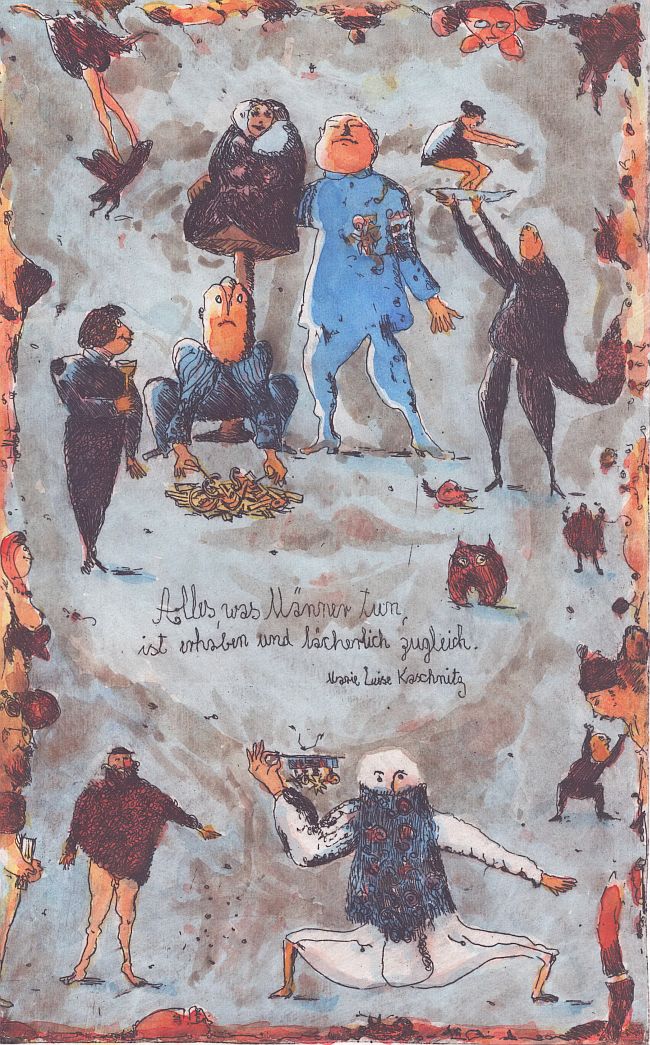 Alles, was Männer tun,
ist erhaben und lächerlich zugleich.
Marie Luise Kaschnitz